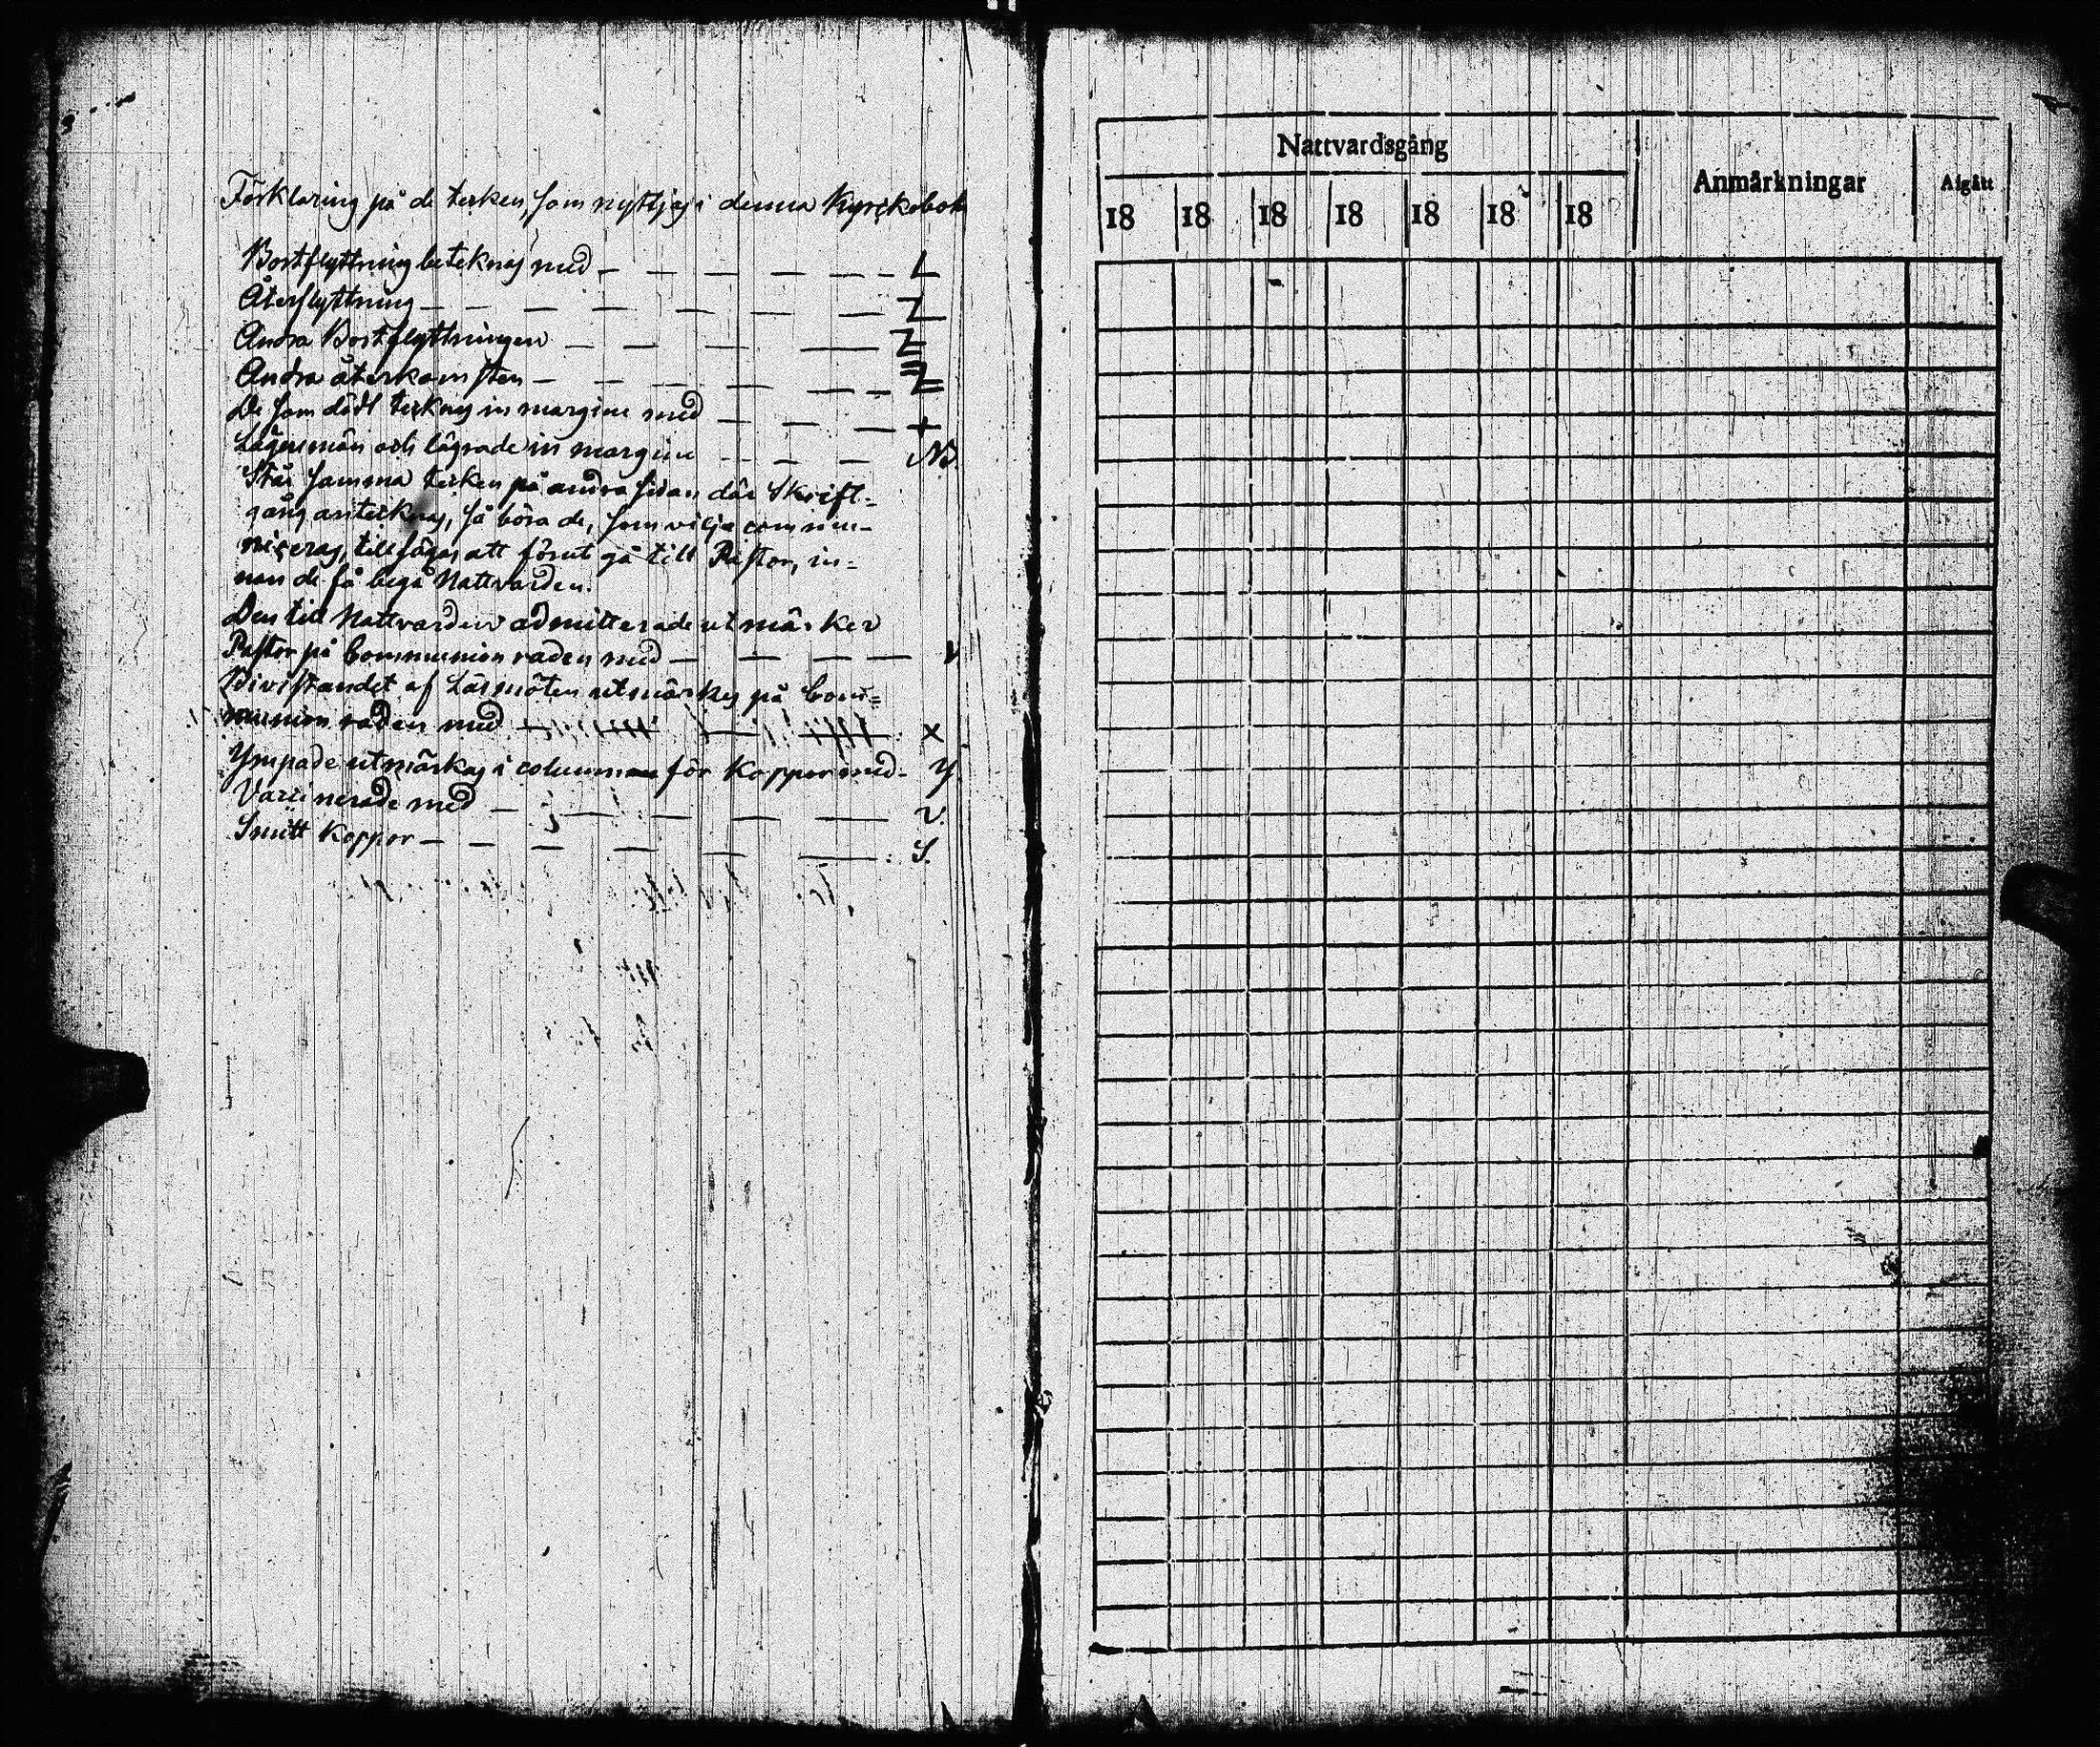 Förklaring på de tecken, som nyttjas i denna Kyrckobok
Bortflyttning beteknas med — — — — — – L
Återflyttning — — — — — — — Z
Andra Bortflyttningen — — — — Z
Andra återkomsten — — — — — — Z
De som dödt teknas in margine med — — — +
Lägersmän och lägrade in margine — — — NB.
Står samma teken på andra sidan där Skrift=
gång anteknas, så böra de, som vilja commu-
niceras, tillsägas att förut gå till Pastor, in=
nan de få begå Nattvarden.
Den till Nattvarden admitterade utmärker
Pastor på Communion raden med — — — — V
Bivistandet af Läsmöten utmärkes på Com=
munion raden med — — — X
Ympade utmärkas i columnen för Koppor med - Y.
Vaccinerade med — — — — — V.
Smitt Koppor — — — — — — S.
Nattvardsgång
Anmärkningar
Afgått
18 18 18 18 18 18 18